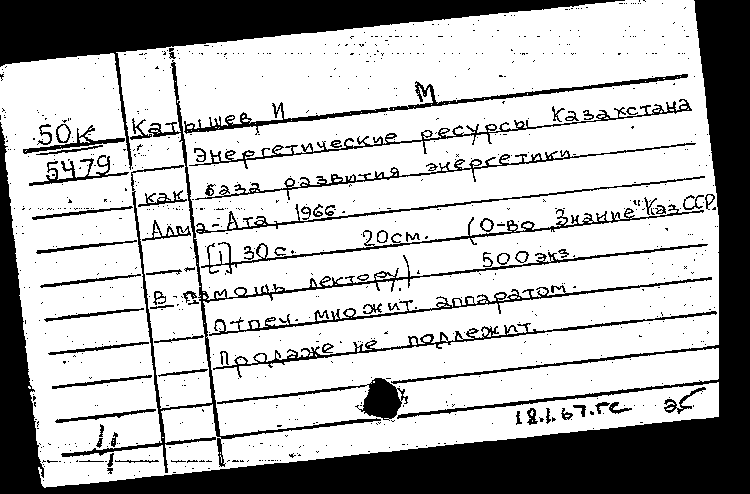 М
50к Катышев, И
5479 Энергетические ресурсы Казахстана
как база развития энергетики.
Алма-Ата, 1966.
[1], 30 с. 20см. (О-во „Знание" Каз.ССР.
В помощь лектору). 500 экз.
Отпеч. множит. аппаратом.
Продаже не подлежит.
18.1.67.гс